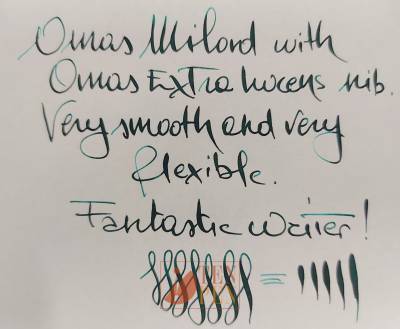 Omas Milord with
Omas Extra lucens nib.
Very smooth and very
flexible.
Fantastic writer!